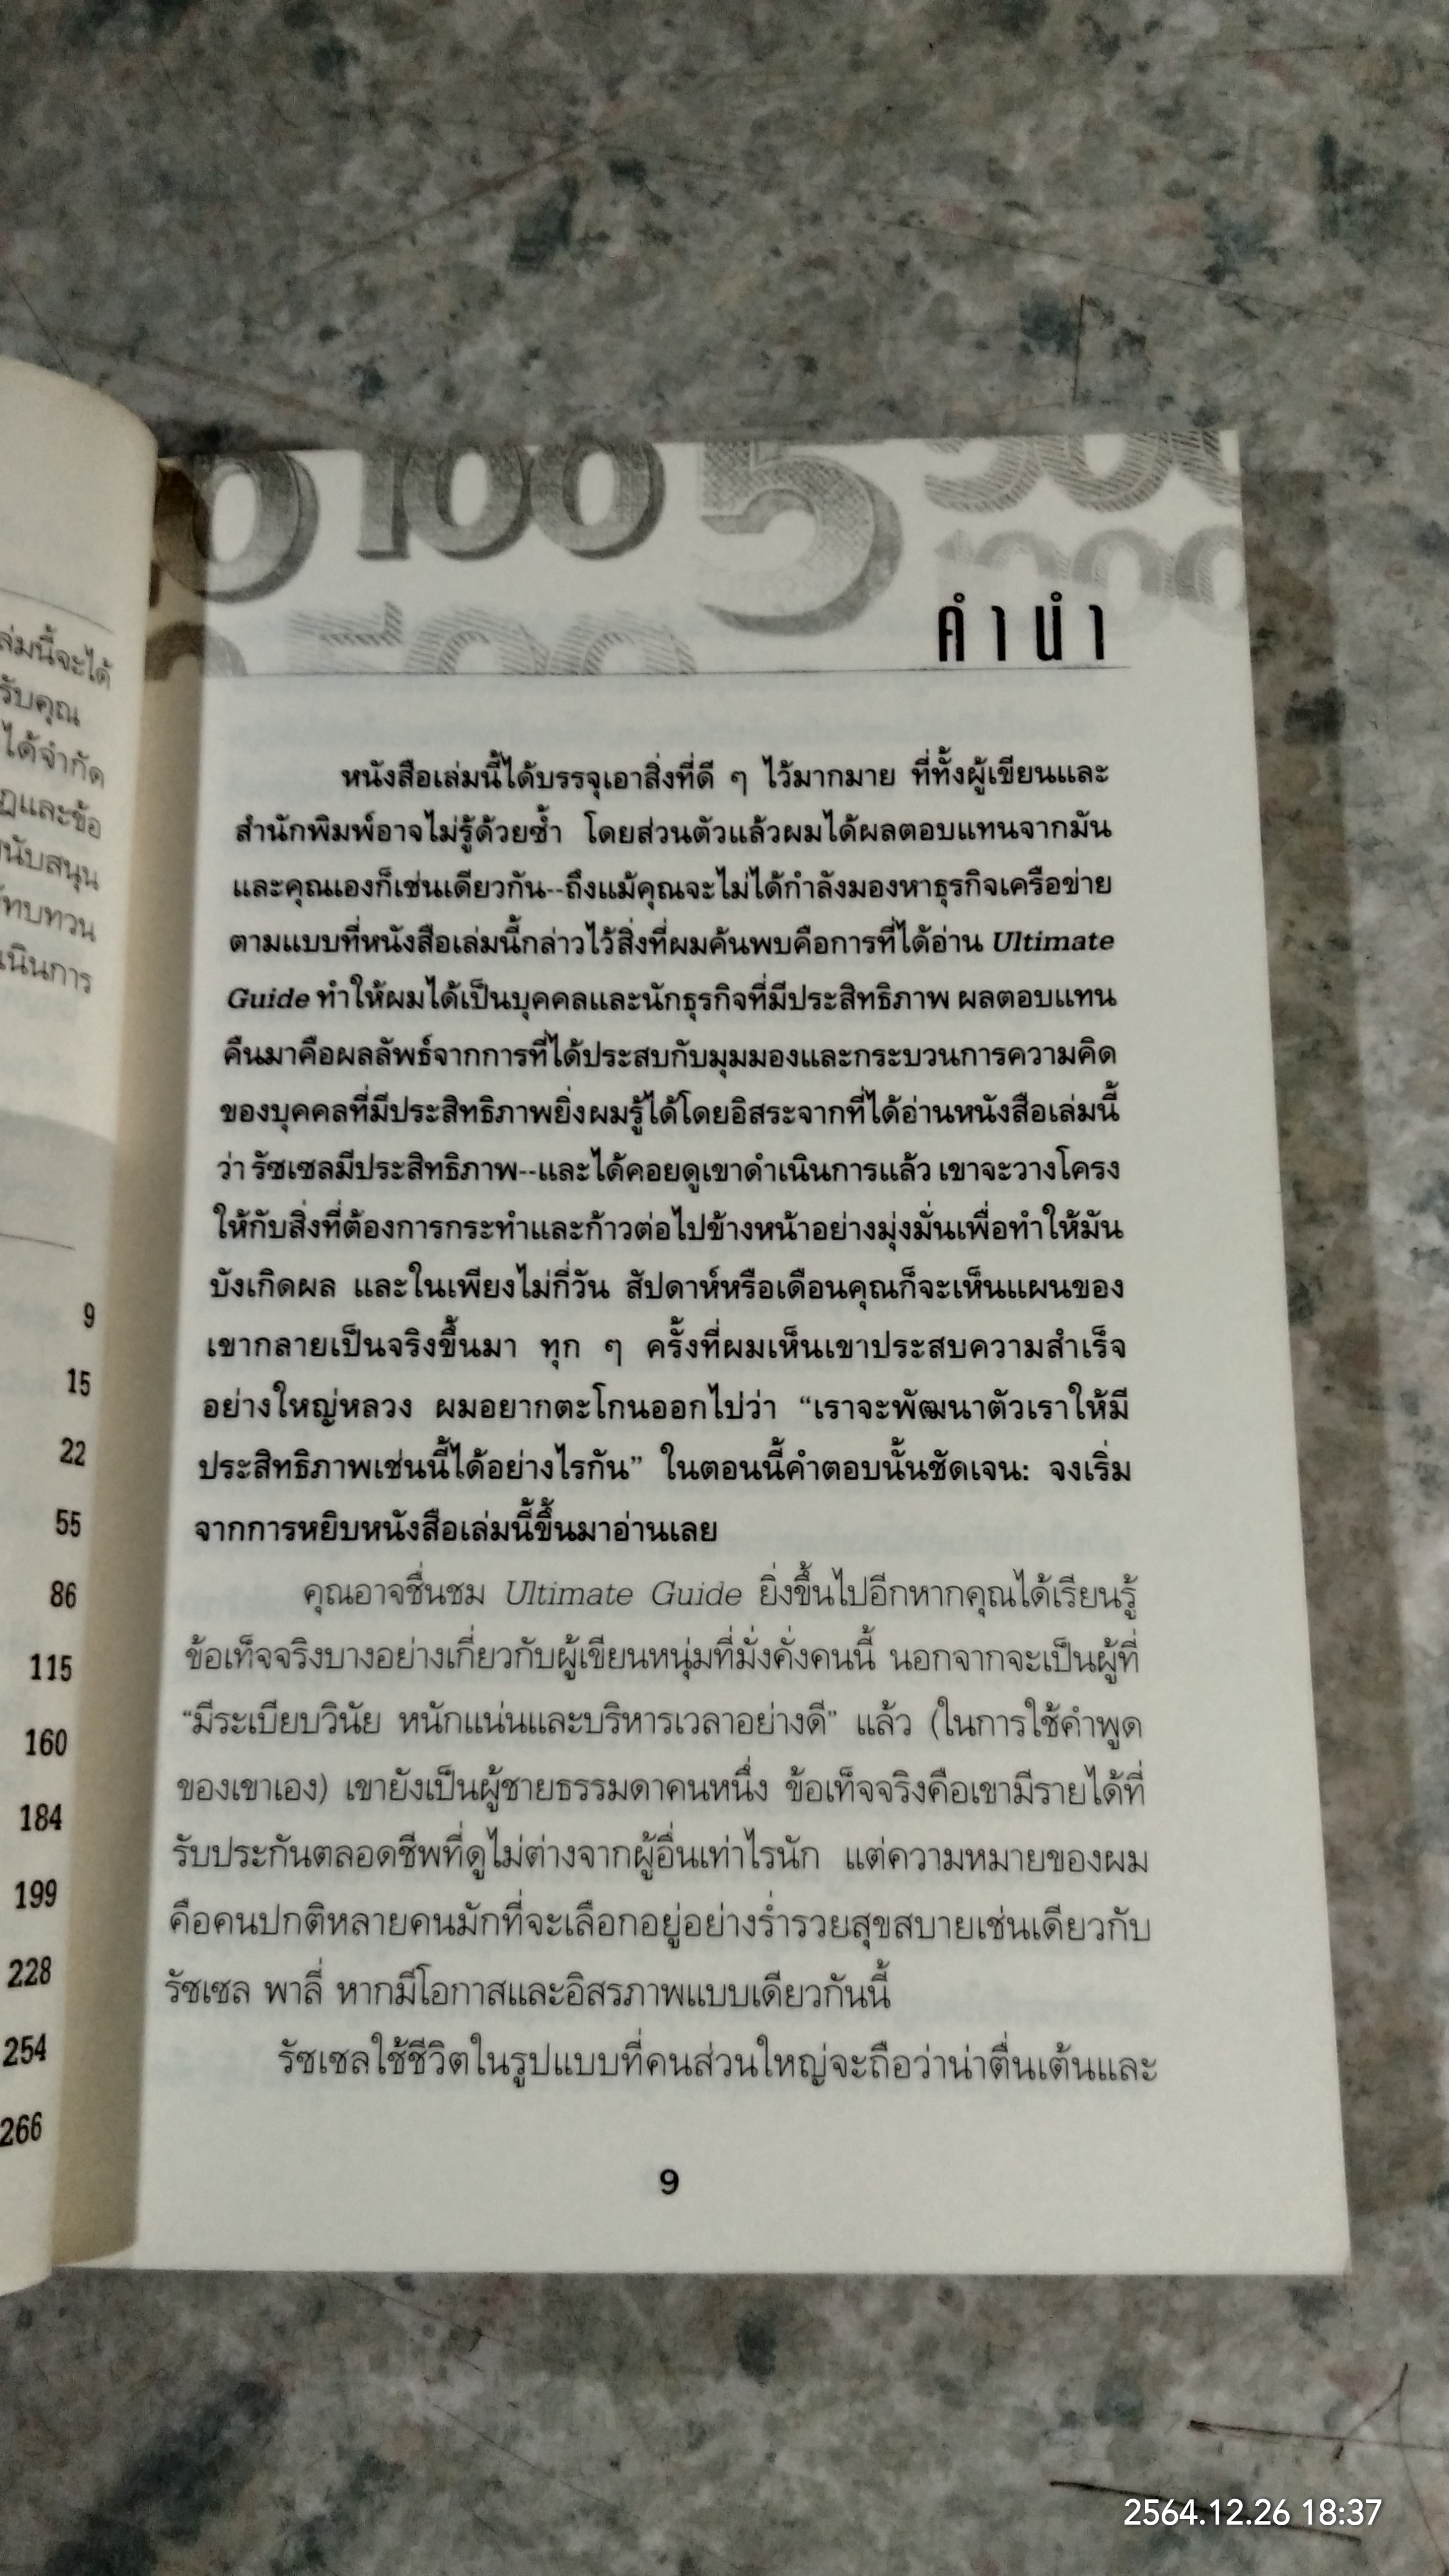 ล่มนี้จะได้
รับคุณ
ได้จำกัด
และข้อ
นับสนุน
ทบทวน
เนินการ
9
15
22
55
86
115
160
184
199
228
254
266
100 5 500
1000
คำนำ
หนังสือเล่มนี้ได้บรรจุเอาสิ่งที่ดี ๆ ไว้มากมาย ที่ทั้งผู้เขียนและ
สำนักพิมพ์อาจไม่รู้ด้วยซ้ำ โดยส่วนตัวแล้วผมได้ผลตอบแทนจากมัน
และคุณเองก็เช่นเดียวกัน--ถึงแม้คุณจะไม่ได้กำลังมองหาธุรกิจเครือข่าย
ตามแบบที่หนังสือเล่มนี้กล่าวไว้สิ่งที่ผมค้นพบคือการที่ได้อ่าน Ultimate
Guide ทำให้ผมได้เป็นบุคคลและนักธุรกิจที่มีประสิทธิภาพ ผลตอบแทน
คืนมาคือผลลัพธ์จากการที่ได้ประสบกับมุมมองและกระบวนการความคิด
ของบุคคลที่มีประสิทธิภาพยิ่งผมรู้ได้โดยอิสระจากที่ได้อ่านหนังสือเล่มนี้
ว่า รัซเซลมีประสิทธิภาพ--และได้คอยดูเขาดำเนินการแล้ว เขาจะวางโครง
ให้กับสิ่งที่ต้องการกระทำและก้าวต่อไปข้างหน้าอย่างมุ่งมั่นเพื่อทำให้มัน
บังเกิดผล และในเพียงไม่กี่วัน สัปดาห์หรือเดือนคุณก็จะเห็นแผนของ
เขากลายเป็นจริงขึ้นมา ทุก ๆ ครั้งที่ผมเห็นเขาประสบความสำเร็จ
อย่างใหญ่หลวง ผมอยากตะโกนออกไปว่า “เราจะพัฒนาตัวเราให้มี
ประสิทธิภาพเช่นนี้ได้อย่างไรกัน” ในตอนนี้คำตอบนั้นชัดเจน: จงเริ่ม
จากการหยิบหนังสือเล่มนี้ขึ้นมาอ่านเลย
คุณอาจชื่นชม Ultimate Guide ยิ่งขึ้นไปอีกหากคุณได้เรียนรู้
ข้อเท็จจริงบางอย่างเกี่ยวกับผู้เขียนหนุ่มที่มั่งคั่งคนนี้ นอกจากจะเป็นผู้ที่
“มีระเบียบวินัย หนักแน่นและบริหารเวลาอย่างดี” แล้ว (ในการใช้คำพูด
ของเขาเอง) เขายังเป็นผู้ชายธรรมดาคนหนึ่ง ข้อเท็จจริงคือเขามีรายได้ที่
รับประกันตลอดชีพที่ดูไม่ต่างจากผู้อื่นเท่าไรนัก แต่ความหมายของผม
คือคนปกติหลายคนมักที่จะเลือกอยู่อย่างร่ำรวยสุขสบายเช่นเดียวกับ
รัซเซล พาลี่ หากมีโอกาสและอิสรภาพแบบเดียวกันนี้
รัซเซลใช้ชีวิตในรูปแบบที่คนส่วนใหญ่จะถือว่าน่าตื่นเต้นและ
9
2564.12.26 18:37